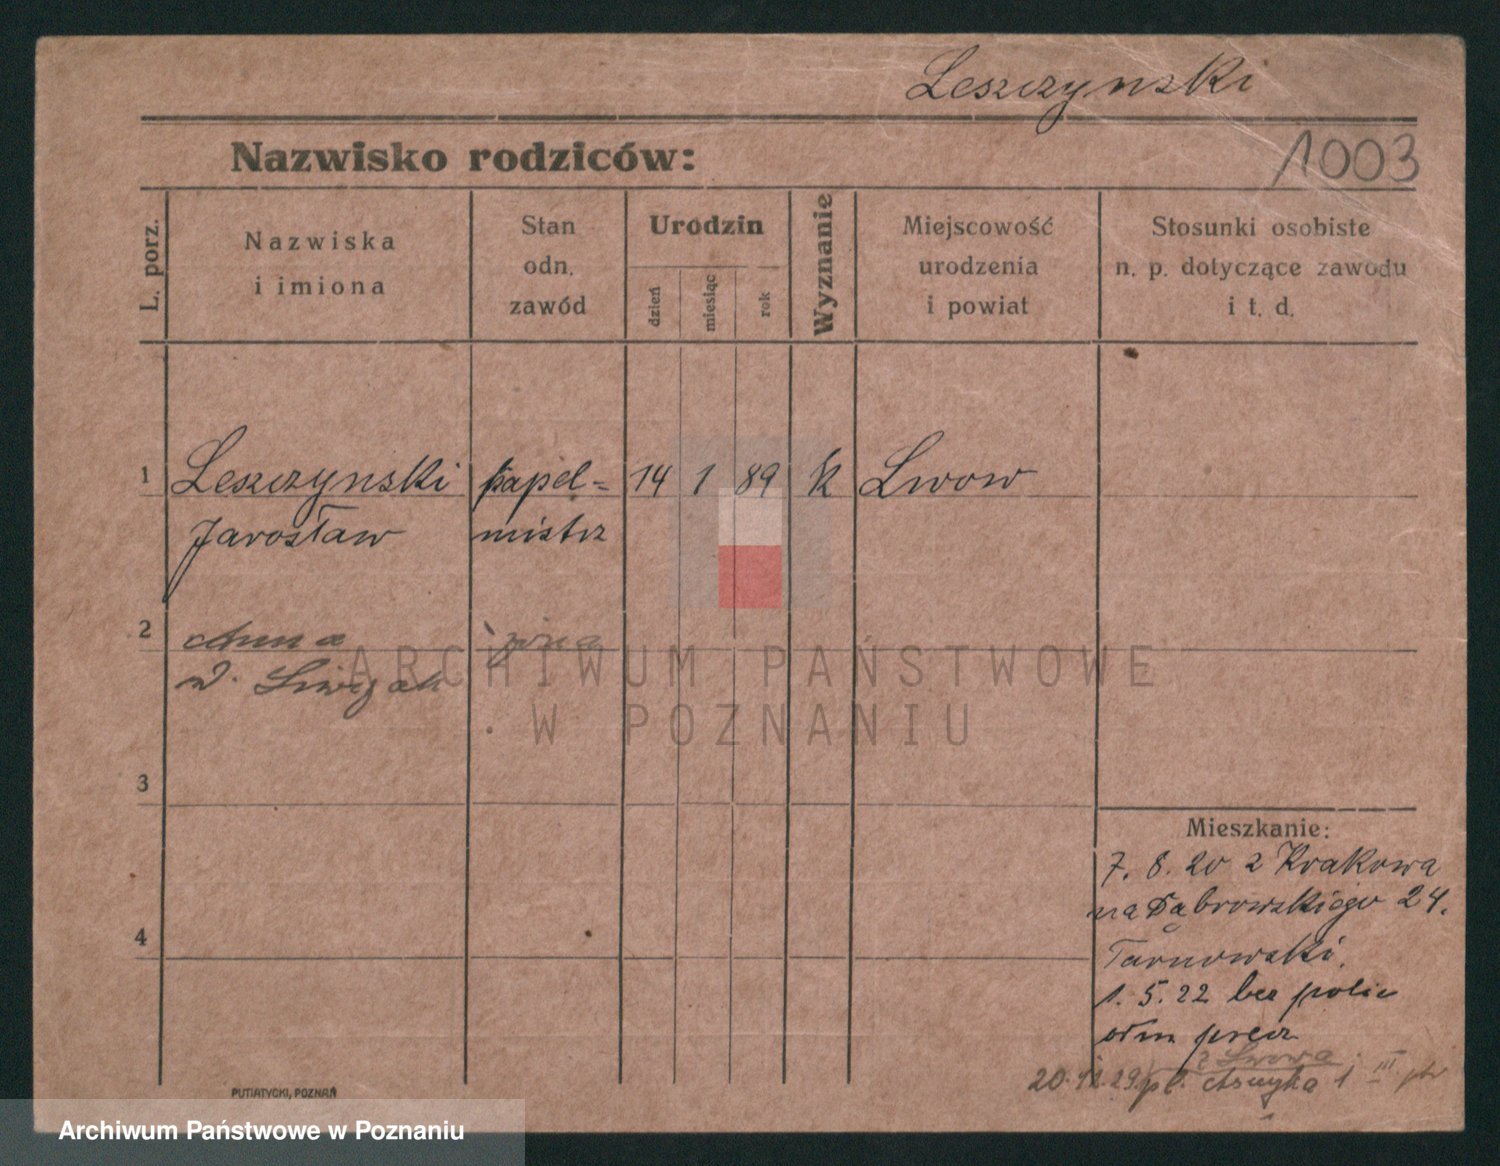 Leszczynski
Nazwisko rodziców:
1003
L. porz.
Nazwiska
i imiona
Stan
odn.
zawód
Urodzin
dzień
miesiąc
rok
Wyznanie
Miejscowość
urodzenia
i powiat
Stosunki osobiste
n. p. dotyczące zawodu
i t. d.
1 Leszczynski kapel= 14 1 89 k Lwow
Jarosław mistrz
2 Anna żona
ARCHIWUM PAŃSTWOWE
W POZNANIU
3
4
Mieszkanie:
7. 8. 20 z Krakowa
na Dąbrowskiego 24.
Tarnowski.
1. 5. 22 bez polic
odm precz
z Lwowa
20. 12. 29 pl. Asnyka 1 III ptr
PUTIATYCKI, POZNAŃ
Archiwum Państwowe w Poznaniu